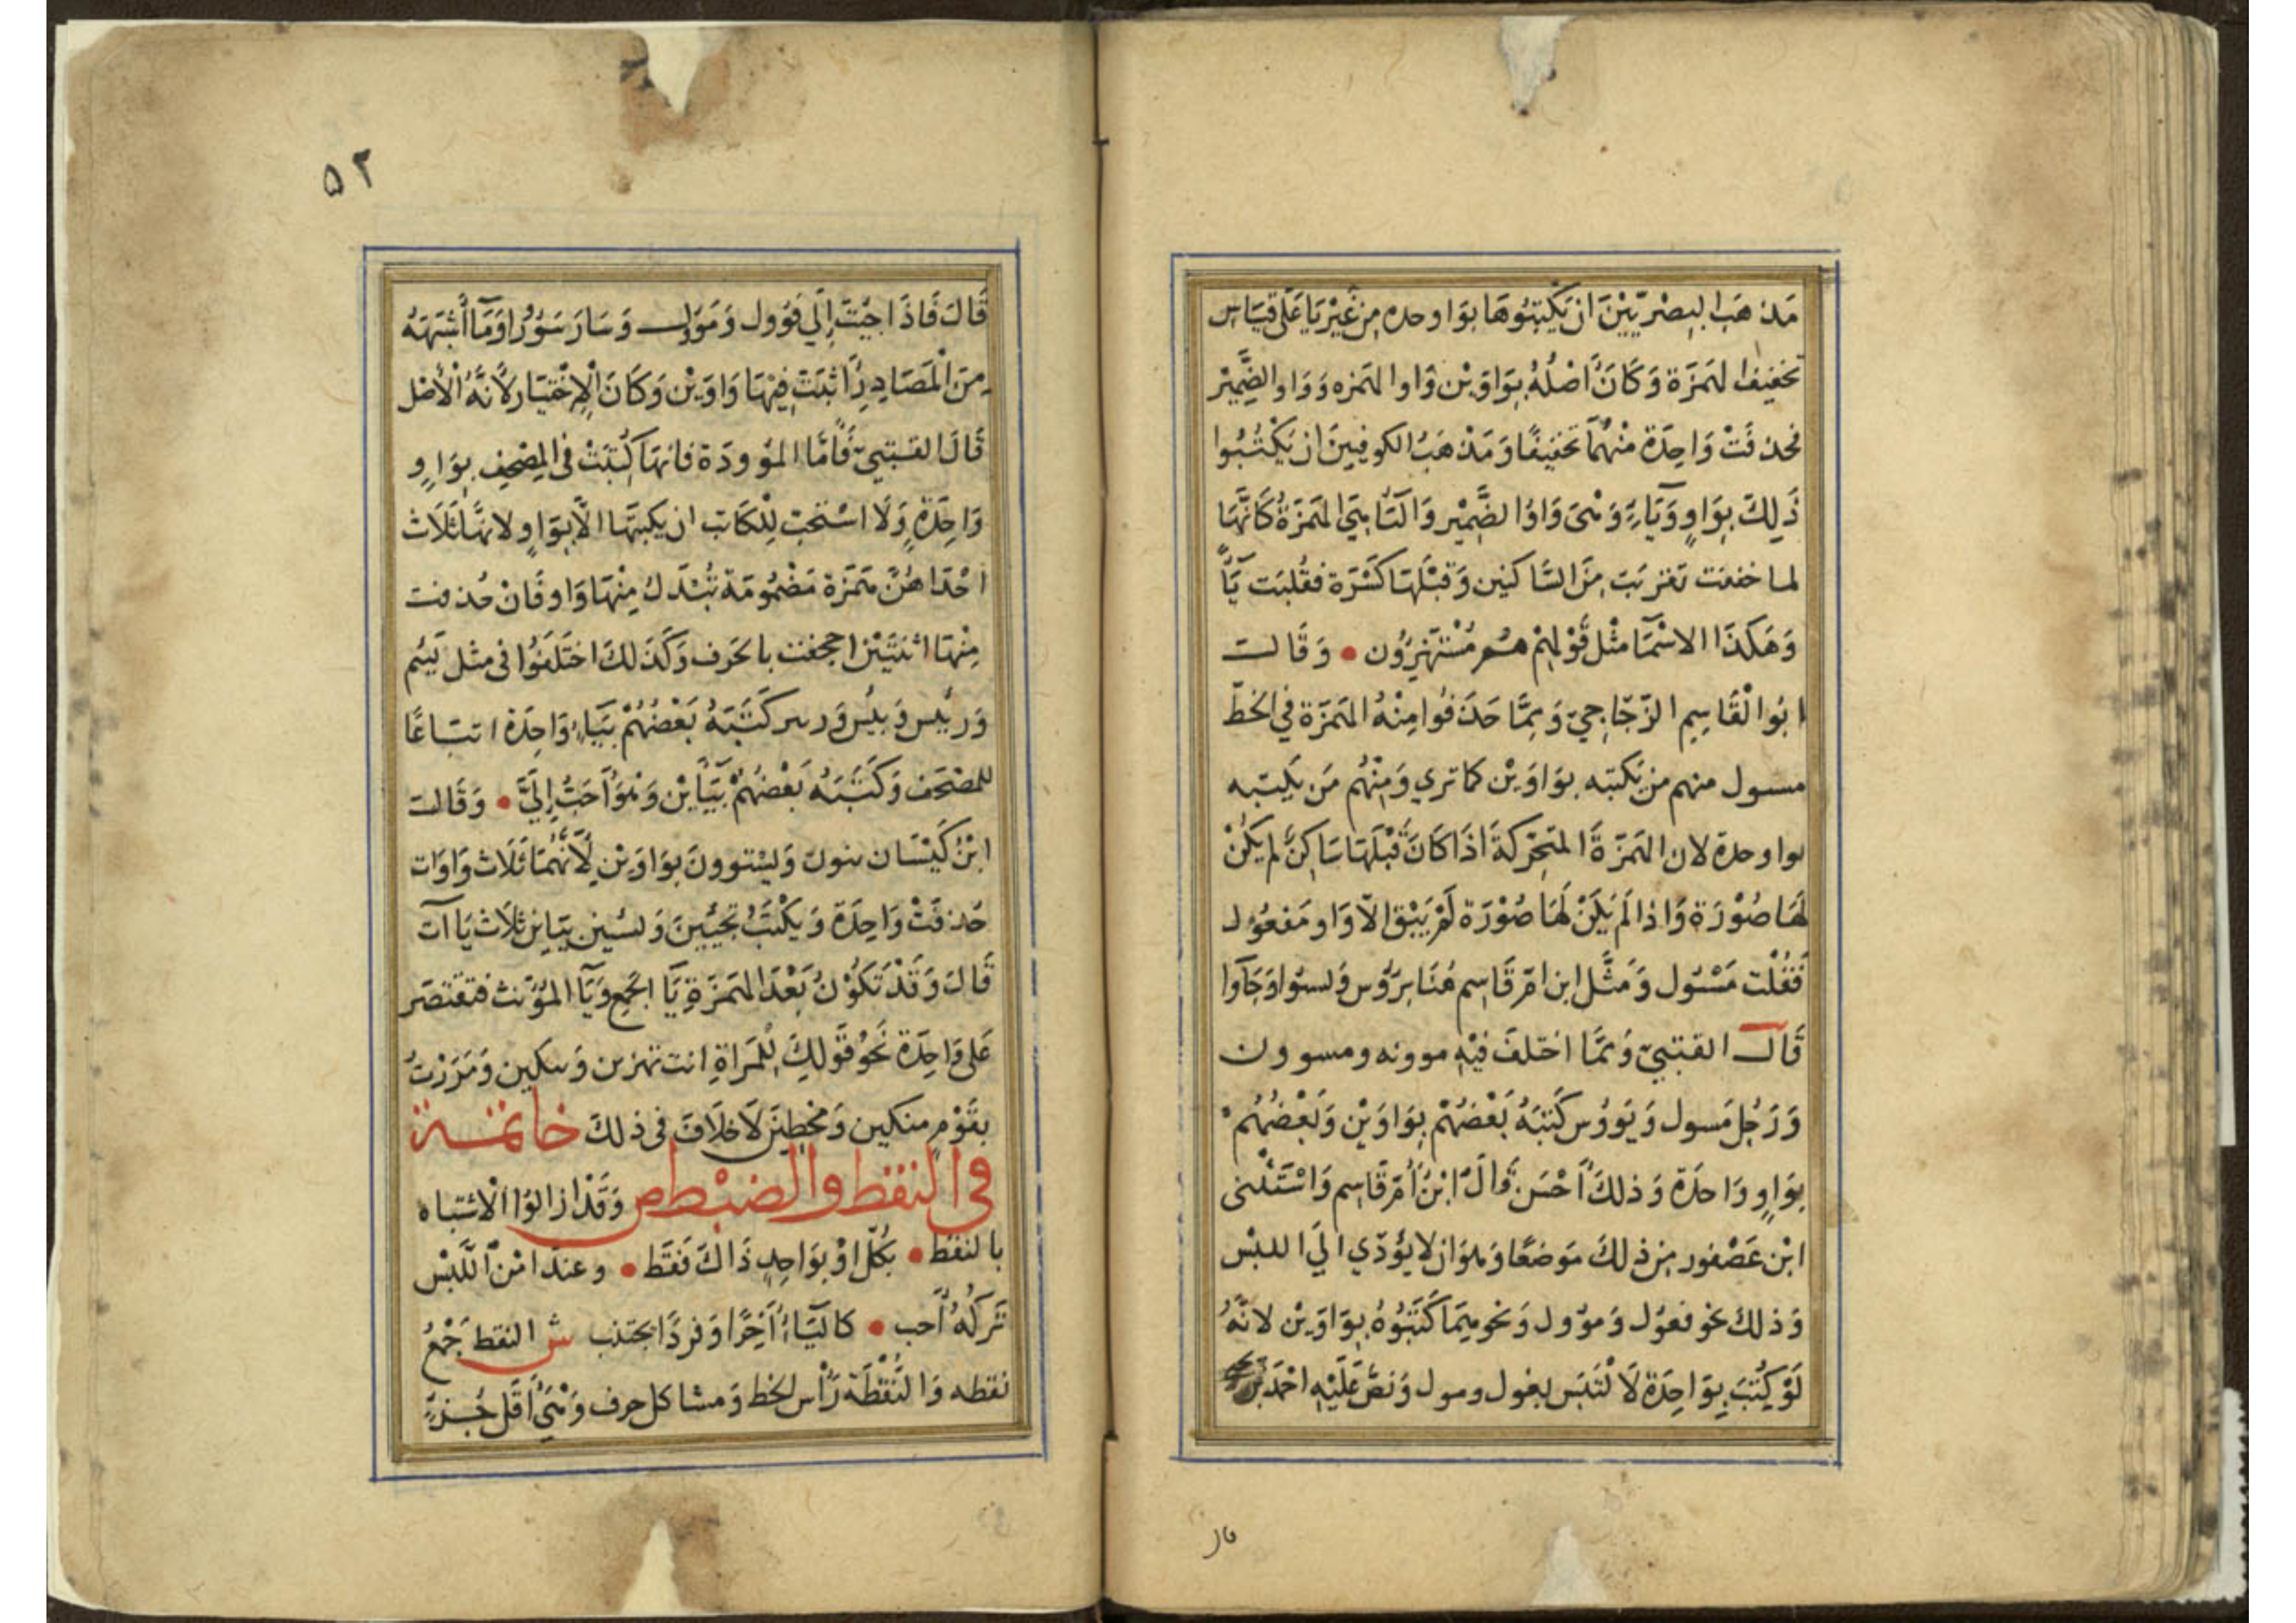 مَذهَبِ البِصْرِيّيْنَ ان يَكْتبُوهَا بوَاو وحده مِن غَيْرِ يَا عَلى قِيَاسِ
تخفيف الهَمزَة وَكَانَ اصْلُهُ بِوَاوَيْن وَاو الهَمزه وَوَاو الضَّمِيْر
فحذفَتْ وَاحِدَة مِنْهُمَا تخفِيفًا وَمَذْهَبُ الكوفيينَ ان يَكْتُبُوا
ذَلِكَ بِوَاوٍ وَيَاءٍ وَهْيَ وَاوُ الضَّمِيْر وَاليَا هِيَ الهَمزَةُ كَانَّهَا
لما خففت تقربَت مِنَ السَّاكنين وَقَبْلهَا كَسْرَة فقُلبَت يَاً
وَهَكَذَا الاسْمَا مثْل قَوْلهِمْ هُم مُسْتَهْزِؤُن • وَقَالـ
ابُو الْقَاسِمِ الزّجّاجيّ وَمِمَّا حَذفُوا مِنْهُ الهَمزَة فِي الخَطّ
مسول منهم من يَكتبه بوَاوَيْن كما تري وَمِنْهُم مَن يَكتبه
بواو وحدة لان الهَمزَةَ المتحَرّكَةَ اذَا كَانَ قَبْلَهَا سَاكِنٌ لم يَكُنْ
لَهَا صُوْرَة وَاذا لَم يَكنْ لَهَا صُوْرَة لَمْ يَبْقَ الّا وَاو مَفعُول
فَقُلْت مَسْئول وَمَثَّل ابن امّ قَاسِم هُنَا بِرَؤُس وَلسئوا وَجَاوا
قَالـ القتبيّ وَممَّا اختلفَ فيْهِ موونه ومسوون
وَرَجُل مَسول وَيَووُس كَتَبَهُ بَعْضُهُمْ بِوَاوَيْن وَبَعْضُهُمْ
بِوَاوٍ وَاحدَة وَذلكَ أحْسَن قَالَ ابْنُ أمّ قَاسِم وَاسْتَثْنى
ابْن عَصْفور مِن ذلكَ مَوضعًا وَهوَ ان لا يؤدّي الَي اللبْس
وَذلكَ نحو فعؤل وَموّول وَنحوهِمَا كَتَبُوهُ بِوَاوَيْن لانَّهُ
لَوْ كُتبَ بِوَاحِدَة لَالْتَبَس بفول ومول وَنصّ عَلَيْهِ احْمَد بن
۵۲
قَالَ فَاذَا جئْتَ إلَي فَؤول وَمَؤل وَسَارَ سَؤُرًا وَمَا أشْبَهَهُ
مِنَ الْمَصَادِرِ أثبَتَ فِيْهَا وَاوَيْن وَكَانَ الْاِخْتيَار لأنَّهُ الْأصْل
قَالَ القتبيّ فَأمَّا المؤودَة فانهَا كُتبَتْ فى المصْحفِ بِوَاوٍ
وَاحِدَةٍ وَلَا اسْتحب لِلْكَاتب ان يكتبَهَا الَّا بِوَاوٍ لانهَا ثَلَاث
احْدَاهُنَّ هَمزَة مَضْمُومَة تُبْدَل مِنْهَا وَاو فَانْ حُذفت
مِنْهَا اثنتَيْن اجحفت بالحَرف وَكَذَلكَ اختَلَفُوا فى مثل يَئِس
وَرئيس وَبئيس كَتَبَهُ بَعْضُهُمْ بِيَاءٍ وَاحِدَة اتبَاعًا
للمصْحَف وَكَتَبَهُ بَعْضُهُمْ بَيَاأيْن وَهوَ أحَبُّ إِلَيَّ • وَقَالَ
ابْنُ كَيْسَان ينوون وَليَسْتوونَ بوَاوَيْن لأنَّهُمَا ثَلَاث وَاوَات
حُذفَتْ وَاحِدَة وَيَكْتَبُ تجيئينَ وَلسئين بيَايْن ثلَاث يَاآت
قَالَ وَقَدْ تَكُوْنُ بَعْدَ الهَمزَةِ يَا الجَمعِ وَيَا المؤنث فتقتصر
عَلى وَاحِدَة نَحْوُ قَوْلِكَ لِلْمَرأةِ انت تهزين وَمَرَرْتُ
بقَوْمٍ متكين وَمخطِينَ لَا خلَافَ فى ذلكَ خاتمـة
فى النقط والضبط ص وَقَدْ ازالوُا الْاشتباه
بالنقط • بكُلّ اوْ بوَاحِدٍ ذَاكَ فَقَط • وعندَ امْن اللَّبْس
تَركُهُ أحب • كاليَاءُ آخِرًا وَفردًا يجتذب ش النقط جَمْعُ
نقطه وَالنُّقْطَة رَأس الخط وَمشاكل حرف وَهْيَ أقَل جُزءٍ